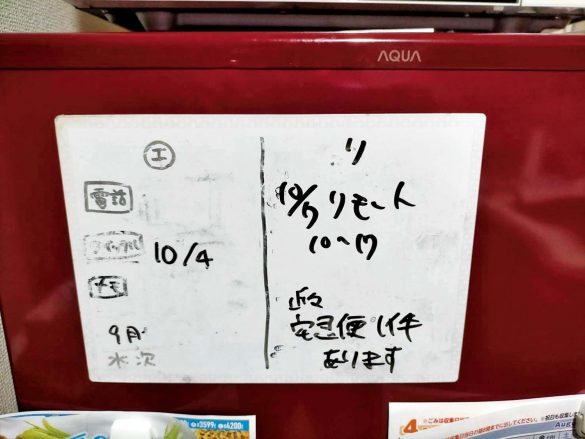 AQUA
エ
電話
10/4
メモ
9月
水次
リ
10/7 リモート
10～17
近々
宅急便1件
あります
¥3599
¥4200
4
※ごみは収集日